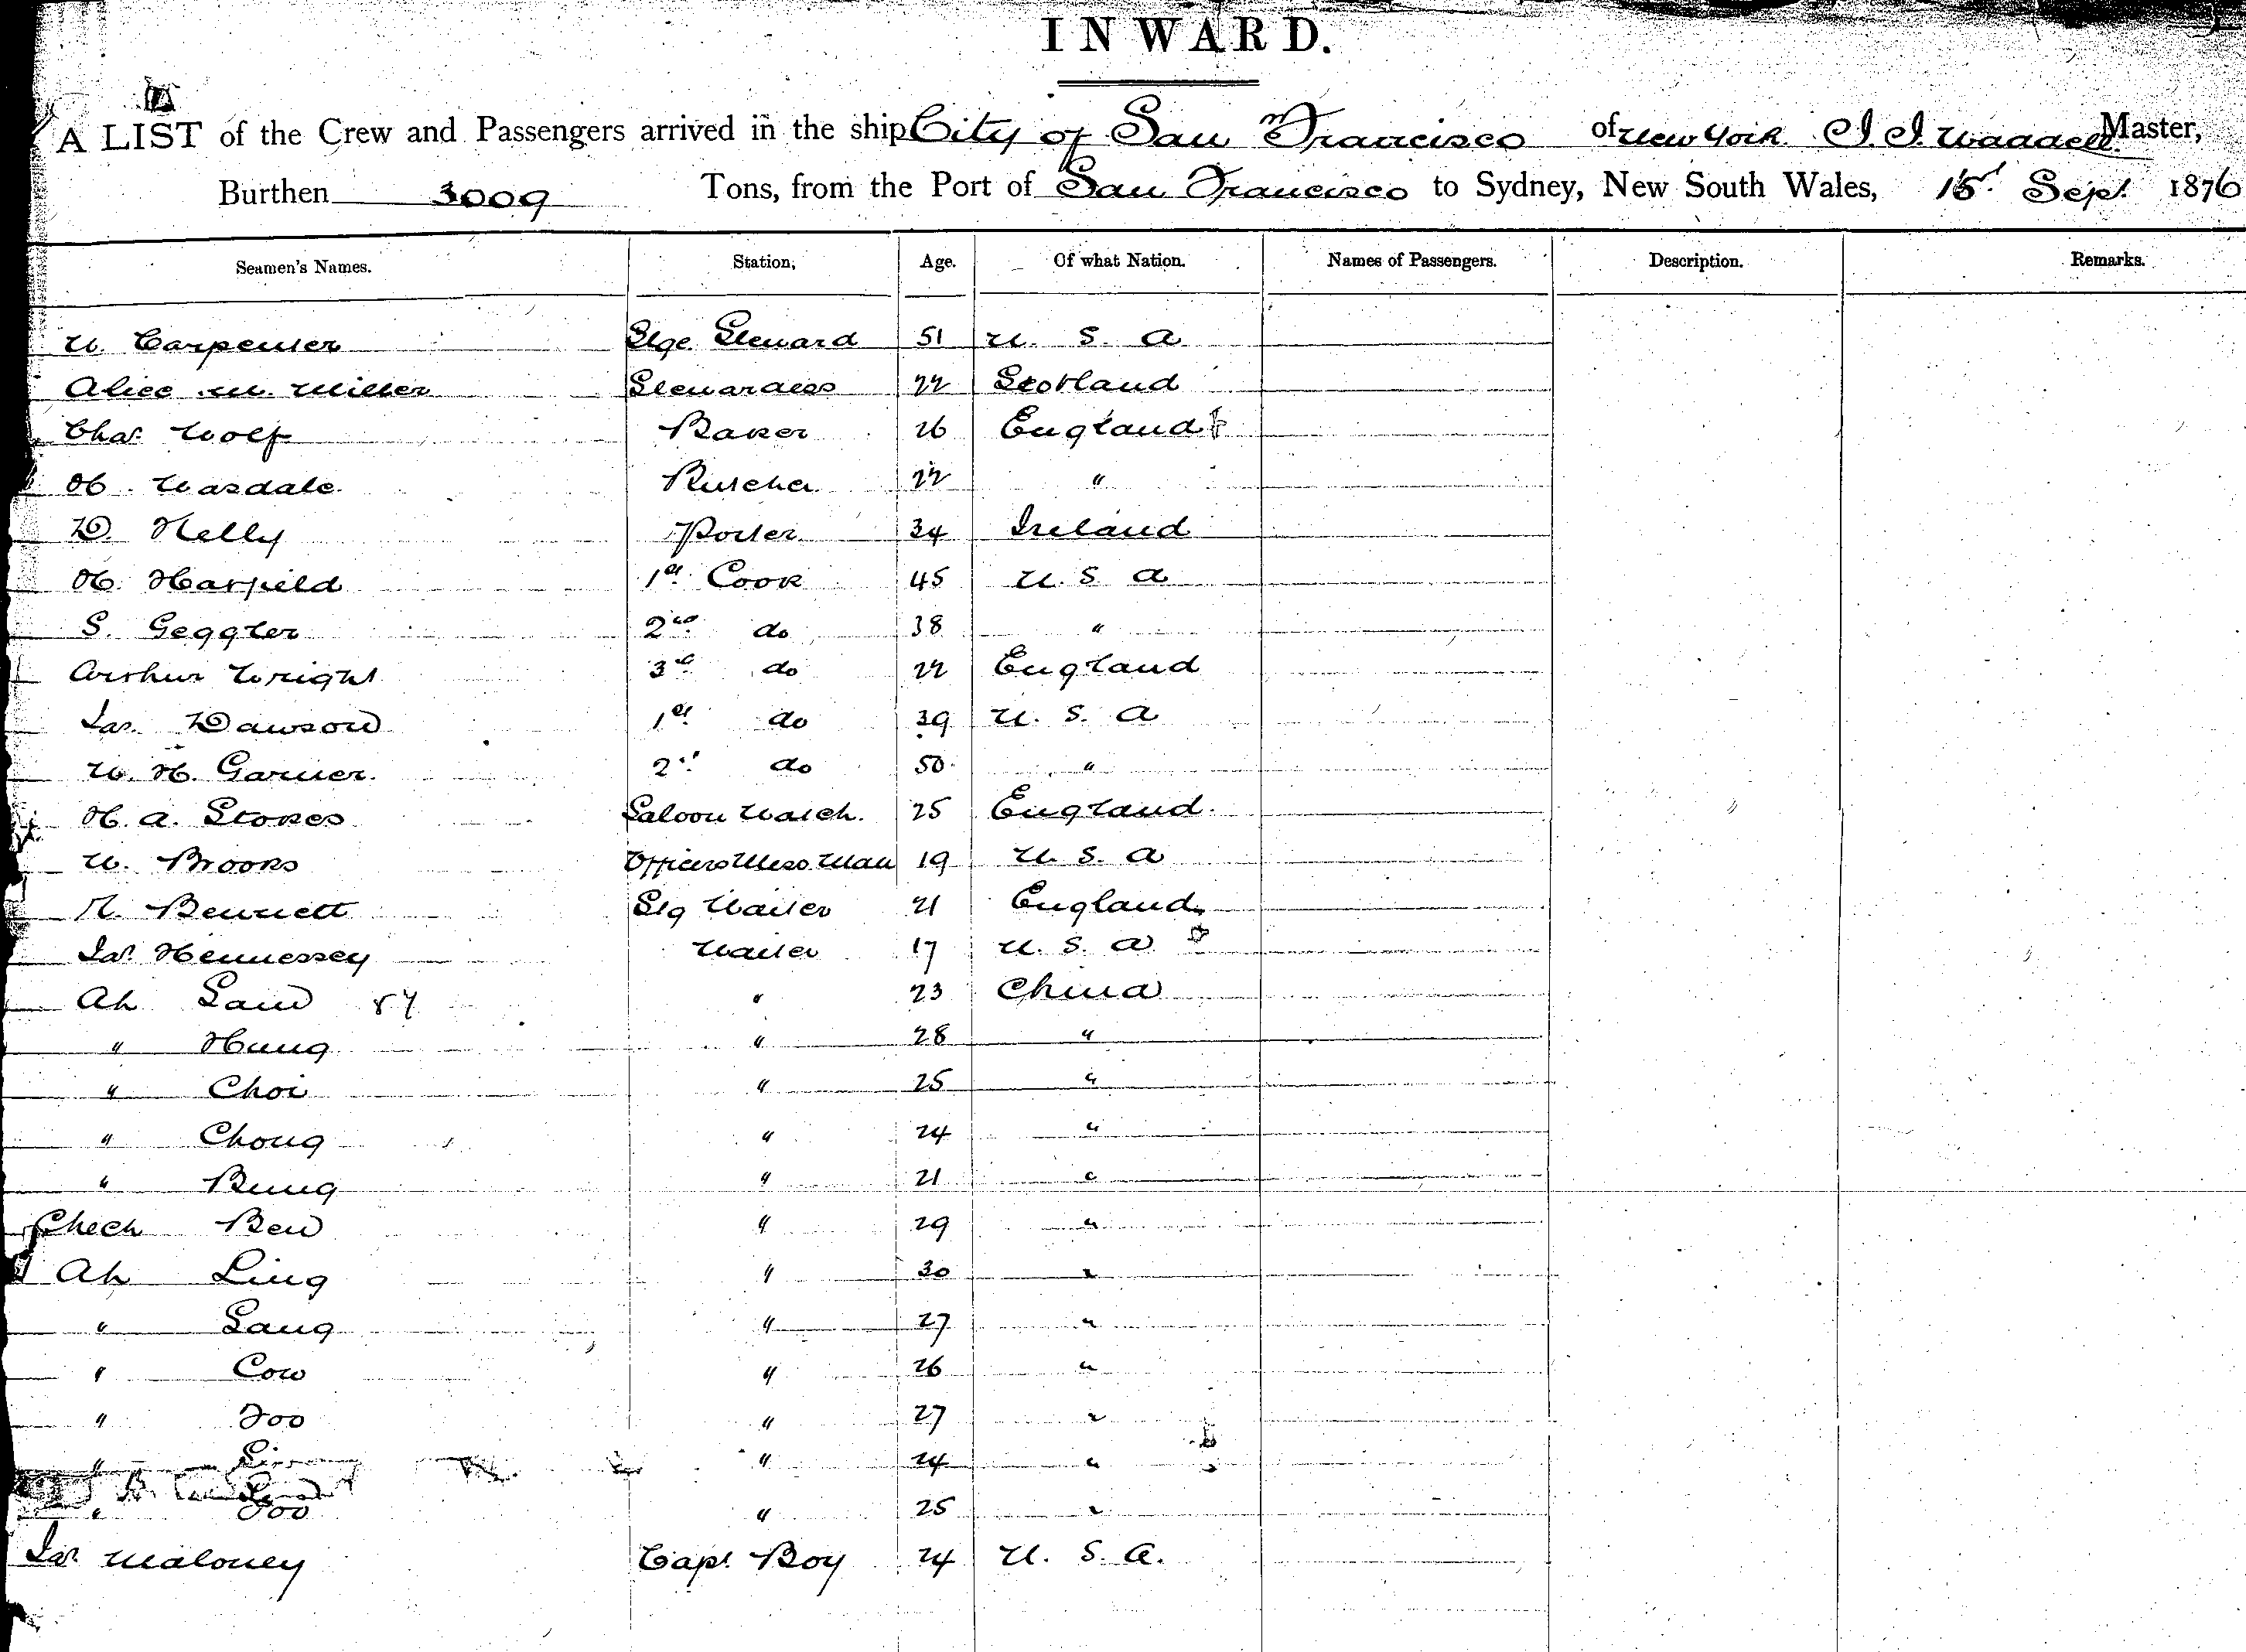 INWARD.
A LIST of the Crew and Passengers arrived in the ship City of San Francisco of New York J. I. Waddell Master,
Burthen 3009 Tons, from the Port of San Francisco to Sydney, New South Wales, 15th Sept. 1876
Seamen's Names. Station, Age. Of what Nation. Names of Passengers. Description. Remarks.
W. Carpenter Stge. Steward 51 U. S. A
Alice M. Miller Stewardess 22 Scotland
Chas. Wolf Baker 26 England
H. Wasdale Butcher 22 "
D. Kelly Porter 34 Ireland
H. Harfield 1st Cook 45 U. S. A
S. Geggter 2nd do 38 "
Arthur Wright 3d do 22 England
Jas. Dawson 1st do 39 U. S. A
W. H. Garner 2d do 50 "
H. A. Stokes Saloon Watch. 25 England
W. Brooks Officers Mess Man 19 U. S. A
R. Bennett Stg Waiter 21 England
Jas. Hennessey Waiter 17 U. S. A
Ah Sam 87 " 23 China
" Hung " 28 "
" Choi " 25 "
" Chong " 24 "
" Bung " 21 "
Check Bew " 29 "
Ah Ling " 30 "
" Sang " 27 "
" Cow " 26 "
" Foo " 27 "
" " 24 "
" Foo " 25 "
Jas. Maloney Capt. Boy 24 U. S. A.